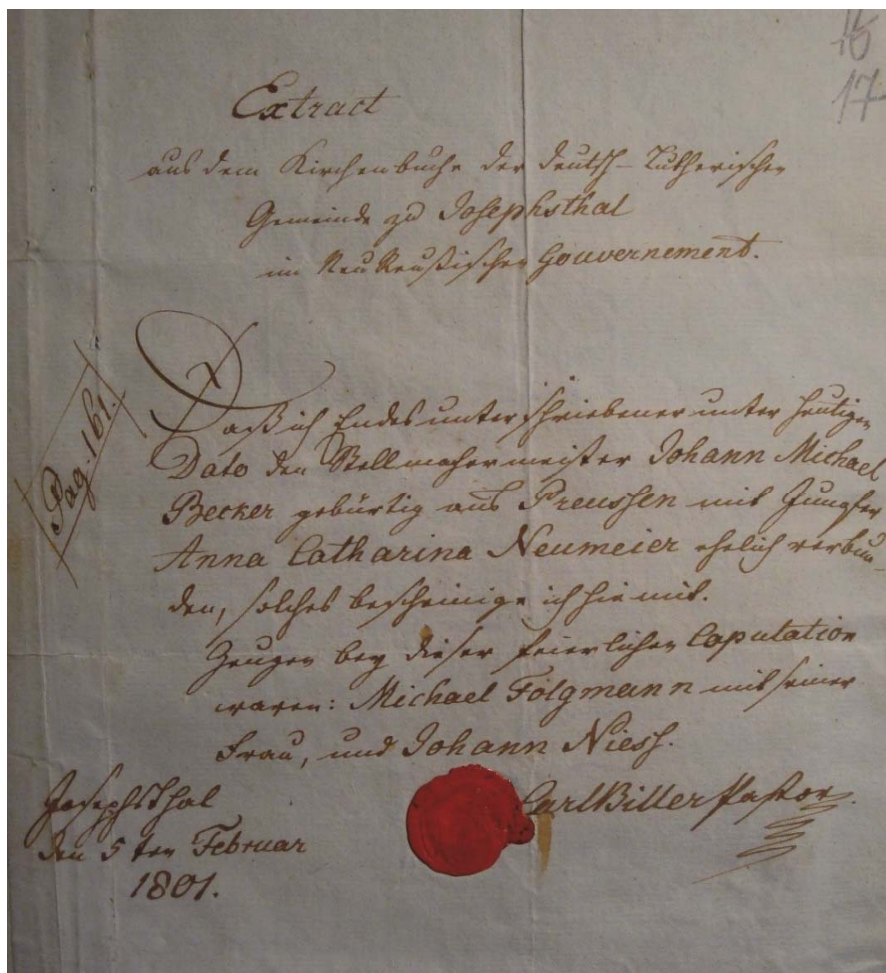 16
17
Extract
aus dem Kirchenbuche der deutsch-Lutherischen
Gemeinde zu Josephsthal
im NeuReußischen Gouvernement.
Pag. 161.
Daß ich Endesunterschriebener unter heutigen
Dato den Stellmachermeister Johann Michael
Becker gebürtig aus Preussen mit Jungfer
Anna Catharina Neumeier ehelich verbun-
den, solches bescheinige ich hiemit.
Zeugen bey dieser feierlichen Coputation
waren: Michael Folgmann mit seiner
Frau, und Johann Niess.
Josephsthal
den 5ten Februar
1801.
Carl Biller Pastor.